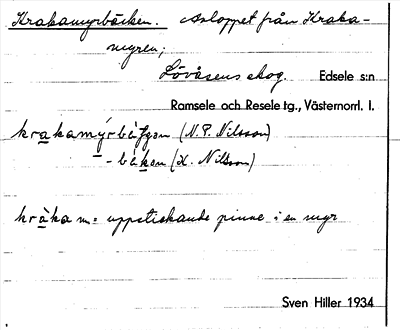 Krakamyrbäcken. Avloppet från Kraka-
myren;
Lövåsens skog. Edsele s:n
Ramsele och Resele tg., Västernorrl. l.
(N. P. Nilsson)
(K. Nilsson)
kråka m: uppstickande pinne i en myr
Sven Hiller 1934